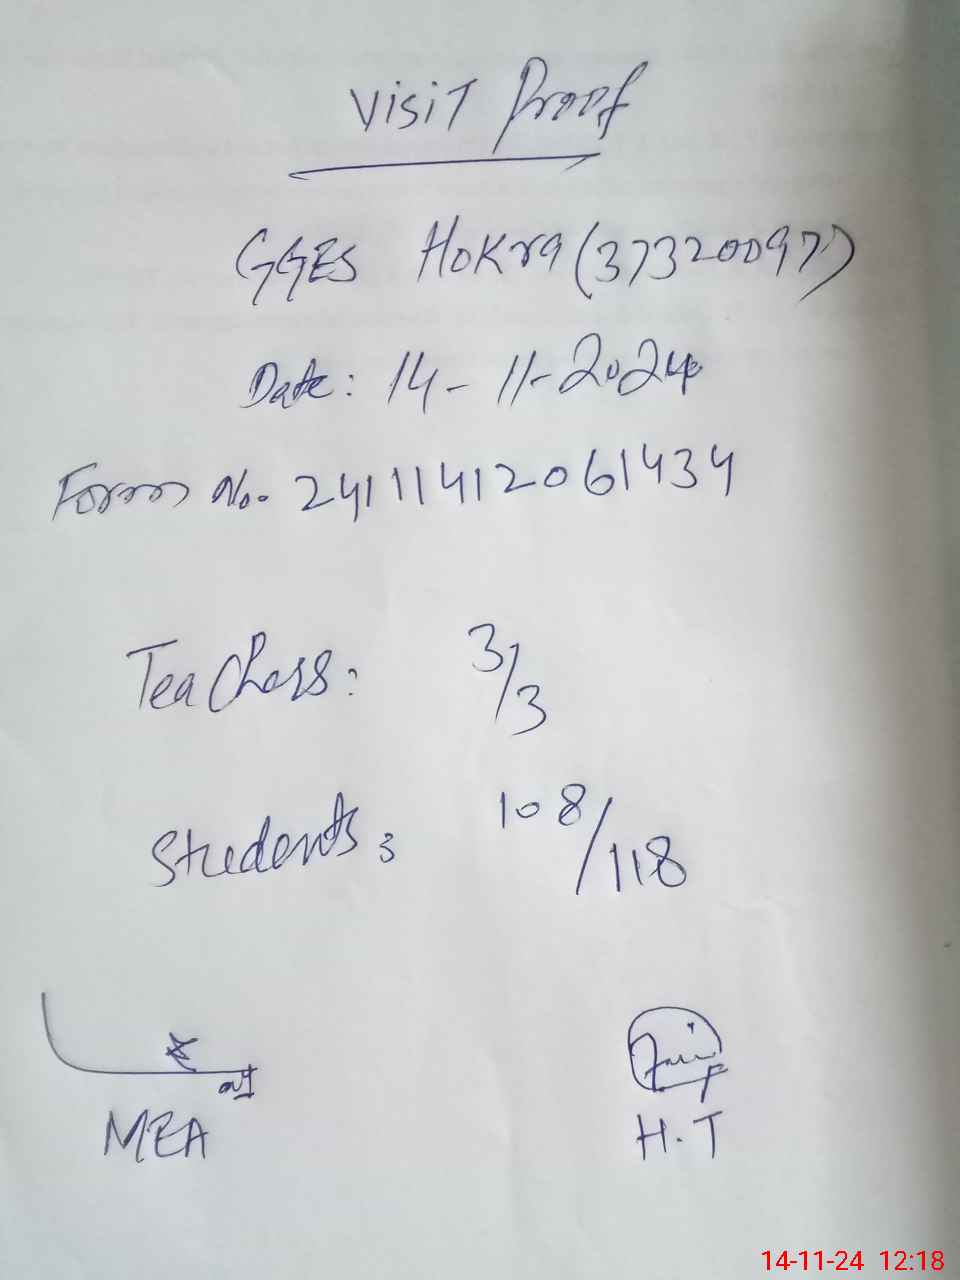 Visit Proof
GGES Hokra (37320097)
Date: 14-11-2024
Form No. 24111412061434
Teachers: 3/3
Students: 108/118
MEA
H.T
14-11-24 12:18